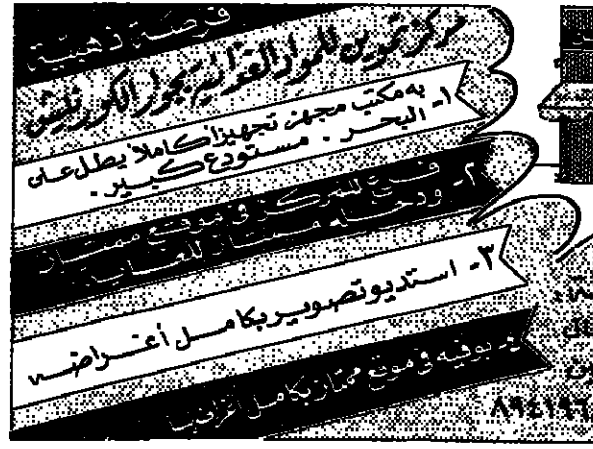 فرصة ذهبية
مركز تموين للمواد الغذائية بجوار الكورنيش
١- به مكتب مجهز تجهيزاً كاملاً يطل على
البحر . مستودع كبير .
٢- فرع للمركز في موقع ممتاز
ودخله ممتاز للغاية
٣- استديو تصوير بكامل أغراضه
٤- بوفيه في موقع ممتاز بكامل أغراضها
٨٩٤١٩٦